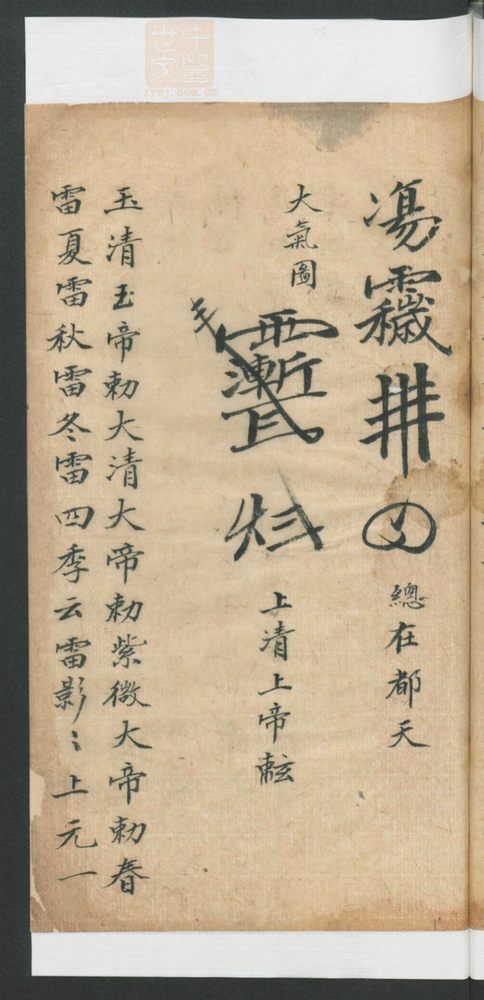 總在都天
大氣圖
上清上帝
玉清玉帝勅大清大帝勅紫微大帝勅春
雷夏雷秋雷冬雷四季云雷影〻上元一
中醫世家
zysj.com.cn